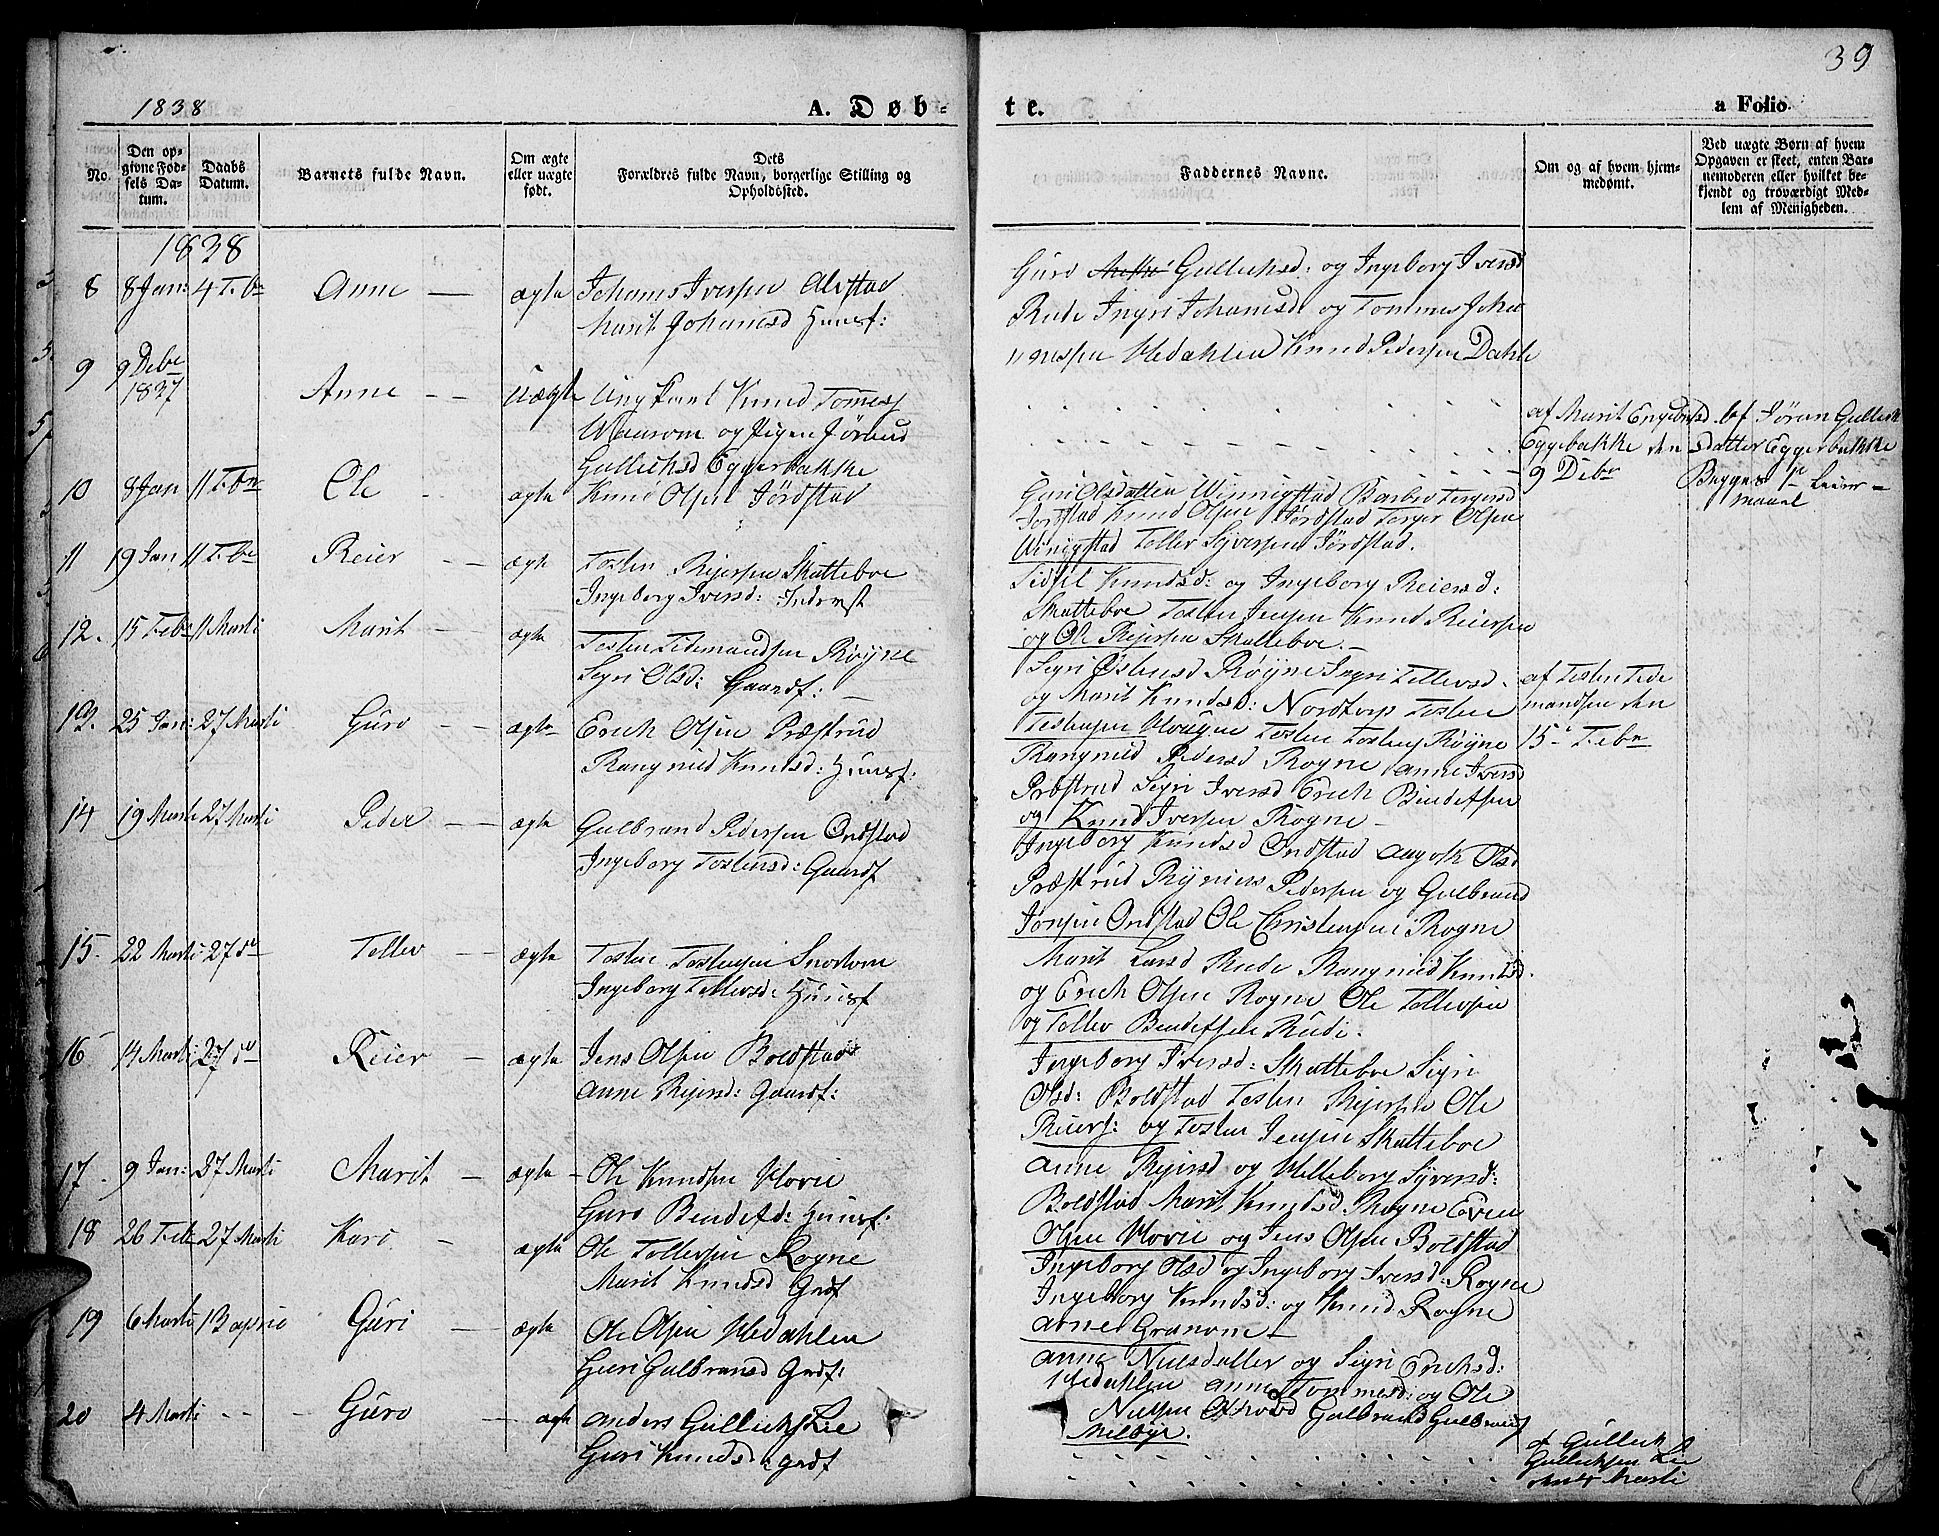 39
1838
A. Døb-
te.
a Folio
No.
Den op-
givne Fød-
sels Da-
tum.
Daabs
Datum.
Barnets fulde Navn.
Om ægte
eller uægte
født.
Dets
Forældres fulde Navn, borgerlige Stilling og
Opholdssted.
Faddernes Navne.
Om og af hvem hjem-
medømt.
Ved uægte Børn af hvem
Opgaven er skeet, enten Bar-
nemoderen eller hvilket be-
kjendt og troværdigt Med-
lem af Menigheden.
1838
8 8 Jan: 4 Febr Anne — ægte Johannes Iversen Alvstad
Marit Johannesd Huusf:
Guro Gullichsd: og Ingeborg Iversd
Rude Ingri Johannesd og Tommes Joha
nnessen Hedahlen Knud Pedersen Dahle
9 9 Debr
1837 Anne - - Uægte Ung Karl Knud Tomes
og Pigen Jørand
Gullichsd Eggerbakke
af Marit Engebrigtsd
Eggebakke den
9 Debr
af Jøran Gullich
sdatter Eggerbakke
Begges 1ste Leier-
maal
10 8 Jan 11 Febr Ole - - ægte Knud Olsen Jørdstad
Guri Olsdatter Winnigstad Barbro Torgersd
Jordstad Knud Olsen Jørdstad Torger Olsen
Winigstad Tollev Syversen Jørdstad.
11 19 Jan 11 Febr Reier - - ægte Tosten Rejersen Skatteboe
Ingeborg Iversd:
Sidsel Knudsd: og Ingeborg Reiersd:
Skatteboe Tosten Jensen Knud Reiersen
og Ole Rejersen Skatteboe.-
12. 15 Febr 11 Marti Marit - - ægte Tosten Tidemandsen Røyne
Sigri Olsd: Gaardf:
Sigri Østensd Røyne Ingri Tollevsd.
og Marit Knudsd: Nordtorp Tosten
Tostensen Hougen Tosten Tostens Røyne
af Tosten Tide
mandsen den
15- Febr
13. 25 Jan: 27 Marti Guro - - ægte Erich Olsen Præstrud
Rangnild Knudsd: Huusf:
Rangnild Pedersd Rogne Anne Iversd
Præstrud Sigri Iversd Erich Bendessen
og Knud Iversen Rogne-
14 19 Marti 27 Marti Peder - - ægte Gulbrand Pedersen Ondstad
Ingeborg Tostensd: Gaardf
Ingeborg Knudsd Ondstad Aagoth Olsd
Præstrud Pedersen og Gulbrand
Ondstad Ole Christensen Rogne
15. 22 Marti 27 do Tollev - - ægte Tosten Tostensen
Ingeborg Tollevsd: Huusf
Marit Larsd Rude Rangnild Knudsd.
og Erich Olsen Rogne Ole Tollevsen
og Tollev Bendessen Rudi.
16 14 Marti 27 do Reier - ægte Jens Olsen Boldstad
Anne Rejersd: Gaardf:
Ingeborg Iversd: Skatteboe Sigri
Olsd: Boldstad Tosten Rejersen Ole
Reiers: og Tosten Jensen Skatteboe
17. 9 Jan: 27 Marti Marit - ægte - Ole Knudsen Hovie
Guro Bendesd: Huusf:
Anne Rejersd og Helleborg Syversd:
Boldstad Marit Knudsd. Rogne Even
Olsen Hovie og Jens Olsen Boldstad
18 26 Feb 27 Marti Kari - ægte Ole Tollevsen Rogne
Marit Knudsd Grdf
Ingeborg Olsd og Ingeborg Iversd: Rogne
Ingeborg Knudsd: og Knud Rogne
Arne Granom-
19 6 Marti 13 April Guri - ægte Ole Olsen Hedahlen
Guri Gulbransd Grdf:
Anne Nielsdatter og Sigri Erichsd:
Hedahlen Anne Tommesd: og Ole
Nielsen Gulbrand Gulbrans
Melbye.
20 4 Marti - - - Guro - ægte Anders Gullichs Lie
Guri Knudsd: Grdf
af Gullich
Gullichsen Lie
den 4 Marti